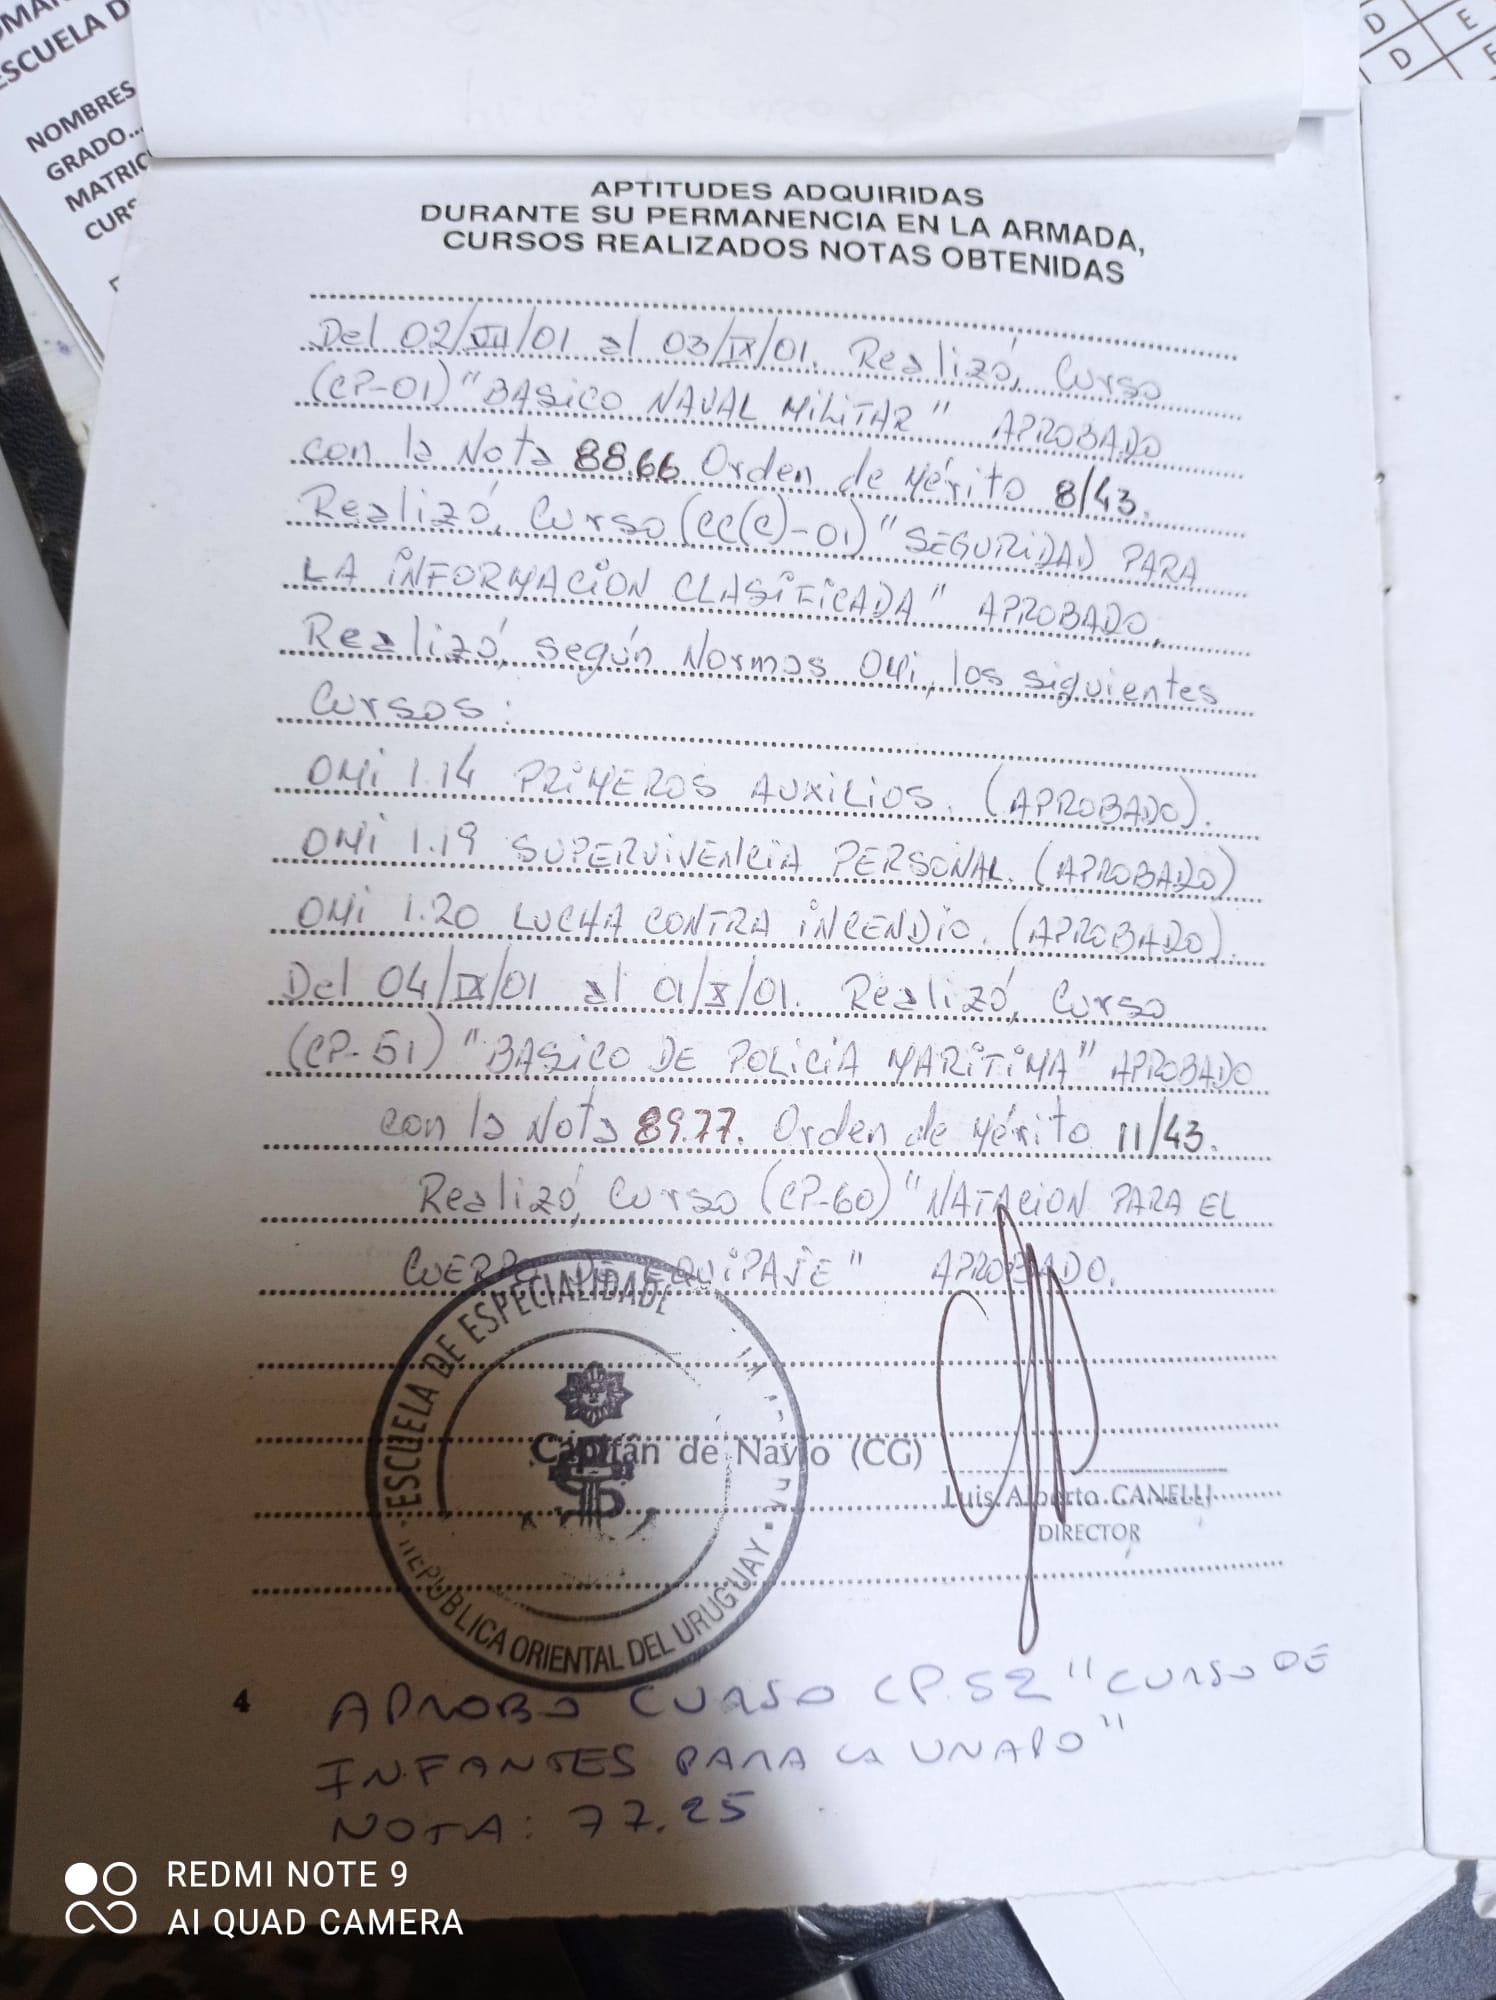 ESCUELA D
NOMBRES
GRADO...
MATRIC
CURS
D E
D E
APTITUDES ADQUIRIDAS
DURANTE SU PERMANENCIA EN LA ARMADA,
CURSOS REALIZADOS NOTAS OBTENIDAS
Del 02/VII/01 al 03/IX/01. Realizó, Curso
(CP-01) "BASICO NAVAL MILITAR" APROBADO
con la Nota 88.66 Orden de Mérito 8/43.
Realizó, Curso (CC(C)-01) "SEGURIDAD PARA
LA INFORMACION CLASIFICADA" APROBADO.
Realizó, según Normas OMI, los siguientes
Cursos:
OMI 1.14 PRIMEROS AUXILIOS. (APROBADO).
OMI 1.19 SUPERVIVENCIA PERSONAL. (APROBADO)
OMI 1.20 LUCHA CONTRA INCENDIO. (APROBADO).
Del 04/IX/01 al 01/X/01. Realizó, Curso
(CP-51) "BASICO DE POLICIA MARITIMA" APROBADO
con la Nota 89.77. Orden de Mérito 11/43.
Realizó, Curso (CP-60) "NATACION PARA EL
CUERPO DE EQUIPAJE" APROBADO.
ESCUELA DE ESPECIALIDADE
Capitán de Navío (CG)
Luis Alberto CANELLI
DIRECTOR
REPUBLICA ORIENTAL DEL URUGUAY
4
APROBO CURSO CP.52 "CURSO DE
INFANTES PARA LA UNAPO"
NOTA: 77.25
REDMI NOTE 9
AI QUAD CAMERA